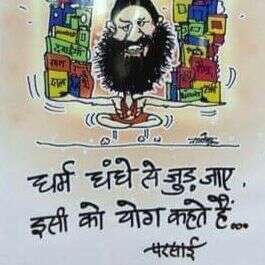 धर्म धंधे से जुड़ जाए,
इसी को योग कहते हैं...
-परसाई